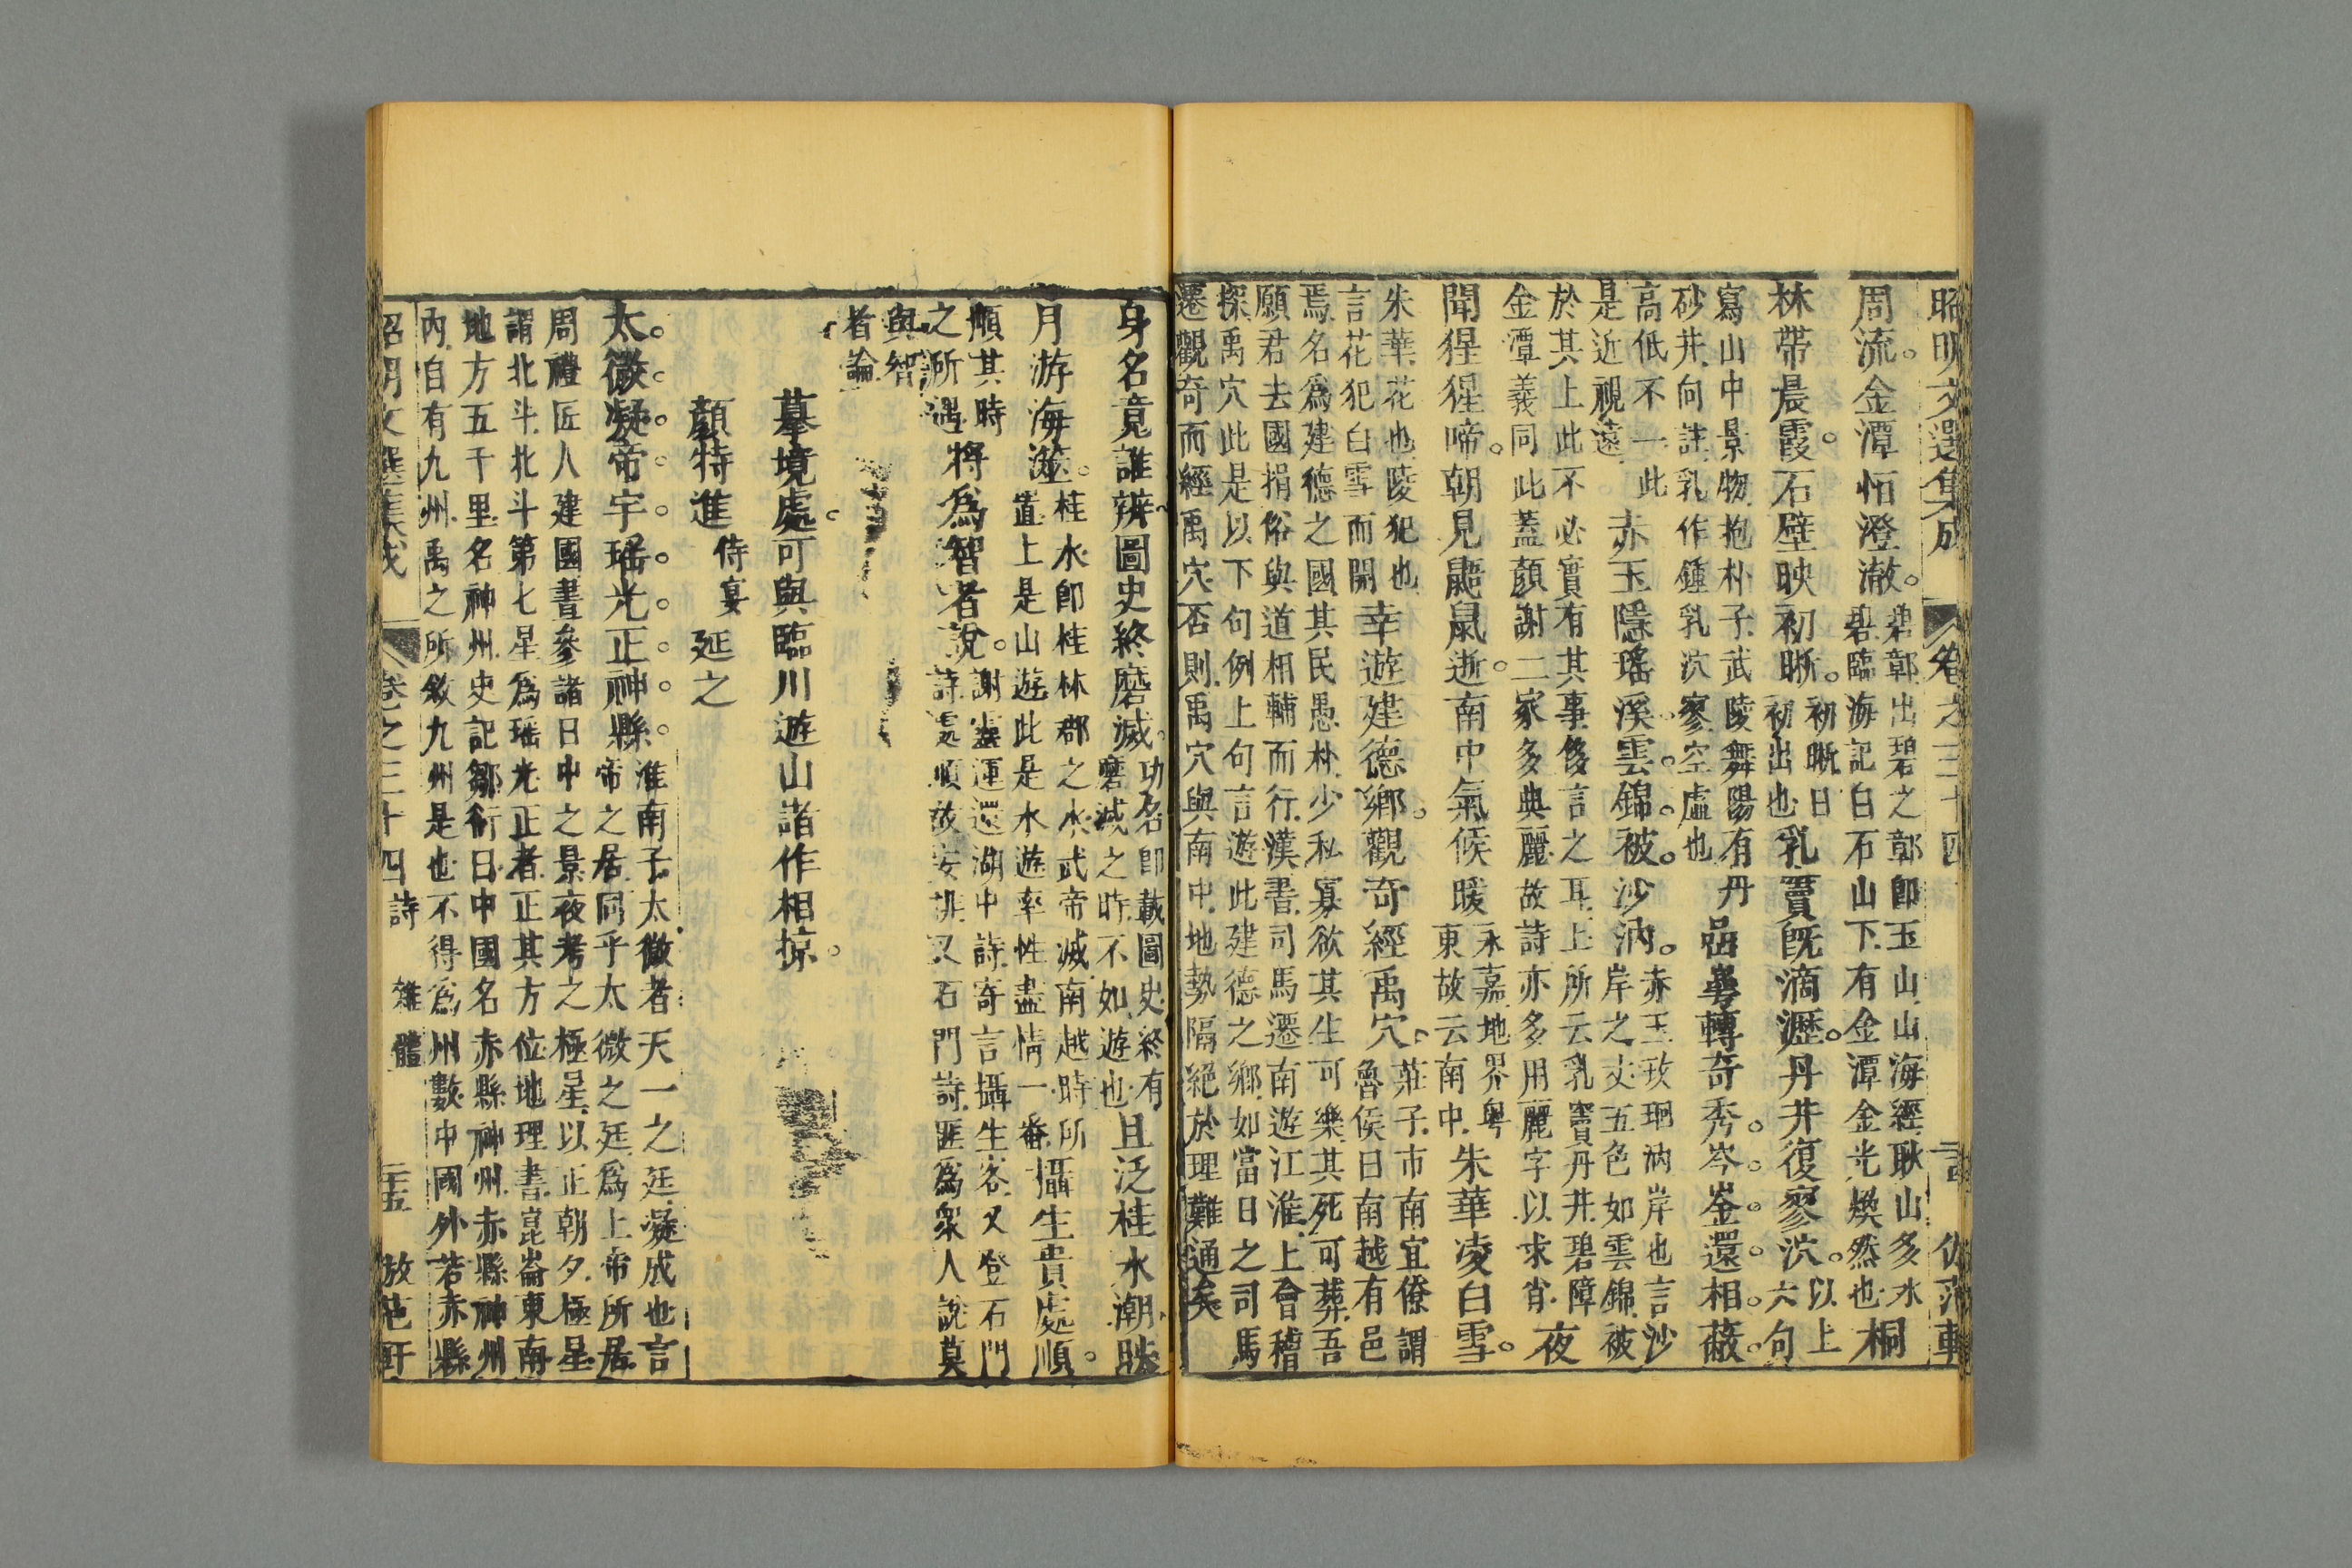 昭明文選集成 卷之三十四
周流金潭恒澄澈碧鄣出碧之鄣卽玉山山海經耿山多水
碧臨海記白石山下有金潭金光煥然也桐
林帶晨霞石壁映初晰初晰日
初出也乳竇旣滴瀝丹井復寥泬以上
六句
寫山中景物抱朴子武陵舞陽有丹
砂井向註乳作鍾乳泬寥空虛也嵒崿轉奇秀岑崟還相蔽
高低不一此
是近視遠赤玉隱瑤溪雲錦被沙汭赤玉玫瑰汭岸也言沙
岸之文五色如雲錦被
於其上此不必實有其事侈言之耳上所云乳竇丹井碧障
金潭義同此蓋顏謝二家多典麗故詩亦多用麗字以求肖夜
聞猩猩啼朝見鼯鼠逝南中氣候暖永嘉地界粵
東故云南中朱華凌白雪
朱華花也陵犯也
言花犯白雪而開幸遊建德鄉觀奇經禹穴莊子市南宜僚謂
魯侯曰南越有邑
焉名爲建德之國其民愚朴少私寡欲其生可樂其死可葬吾
願君去國捐俗與道相輔而行漢書司馬遷南遊江淮上會稽
探禹穴此是以下句例上句言遊此建德之鄉如當日之司馬
遷觀奇而經禹穴否則禹穴與南中地勢隔絕於理難通矣
身名竟誰辨圖史終磨滅功名卽載圖史終有
磨滅之時不如遊也且泛桂水潮映
月游海澨桂水卽桂林郡之水武帝滅南越時所
置上是山遊此是水遊率性盡情一番攝生貴處順
順其時
之所遇將爲智者說謝靈運還湖中詩寄言攝生客又登石門
詩處順故安排又石門詩匪爲衆人說莫
與智
者論
摹境處可與臨川遊山諸作相掠
顏特進侍宴 延之
太微凝帝宇瑤光正神縣淮南子太微者天一之廷凝成也言
帝之居同乎太微之廷爲上帝所居
周禮匠人建國晝參諸日中之景夜考之極星以正朝夕極星
謂北斗北斗第七星爲瑤光正者正其方位地理書崑崙東南
地方五千里名神州史記鄒衍曰中國名赤縣神州赤縣神州
內自有九州禹之所敘九州是也不得爲州數中國外若赤縣
昭明文選集成 卷之三十四 詩 雜體 二十五